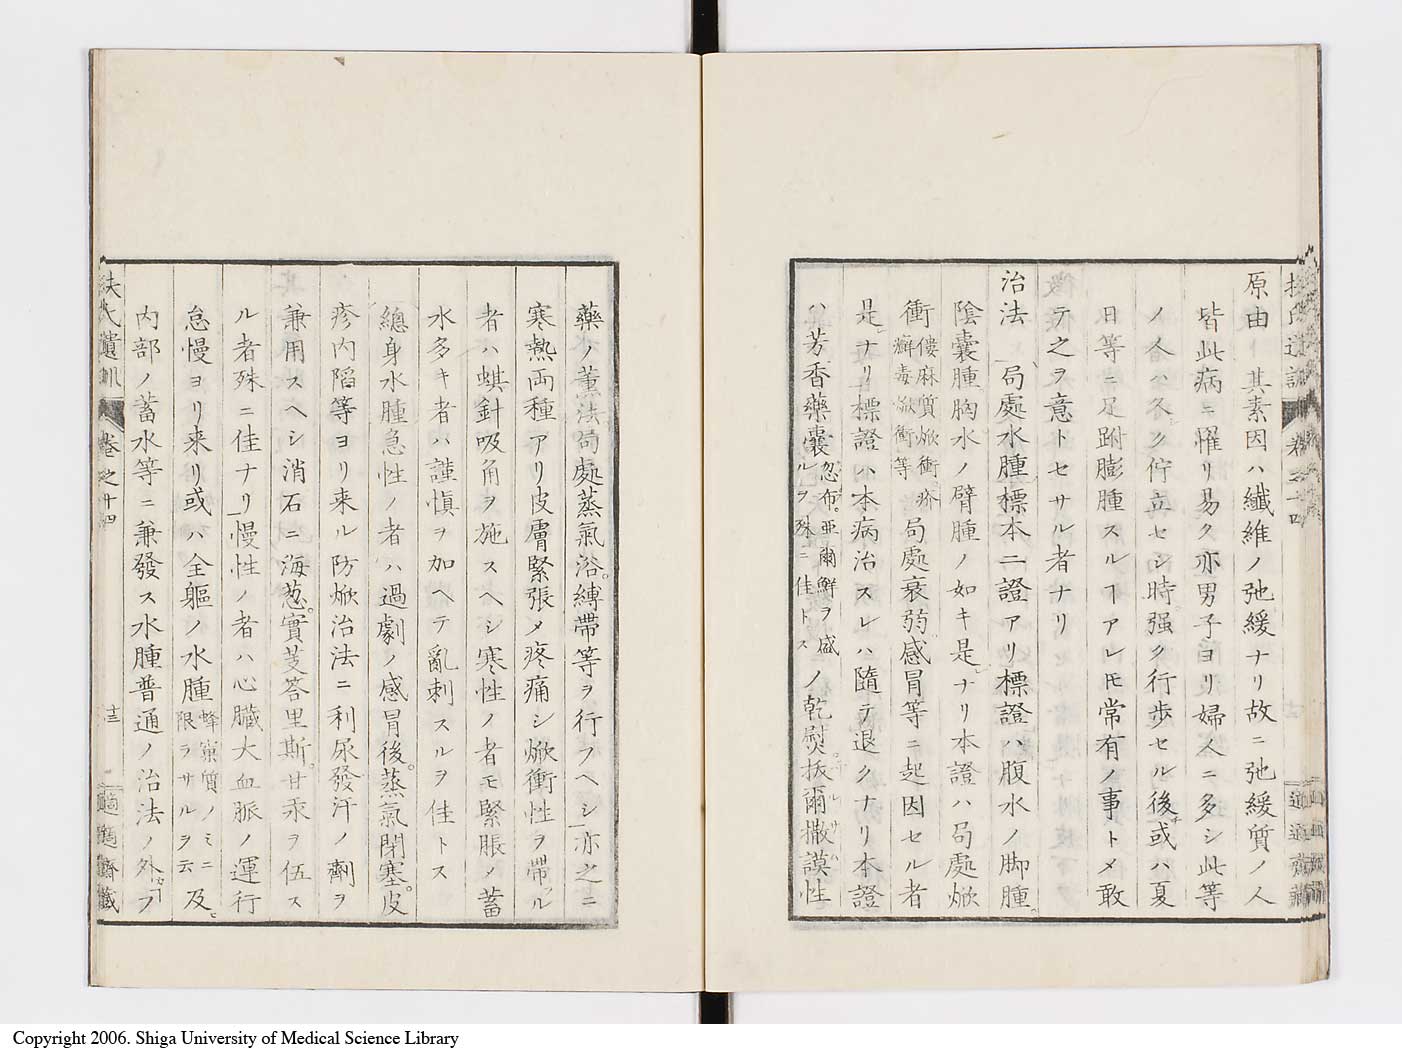 扶氏遺訓 卷之十四
原由 其素因ハ纖維ノ弛緩ナリ故ニ弛緩質ノ人
皆此病ニ懼リ易ク亦男子ヨリ婦人ニ多シ此等
ノ人ハ久シク佇立セシ時强ク行歩セル後或ハ夏
日等ニ足跗膨腫スルヿアレ𪜈常有ノ事トメ敢
テ之ヲ意トセサル者ナリ
治法 局處水腫標本二證アリ標證ハ腹水ノ脚腫
陰囊腫胸水ノ臂腫ノ如キ是ナリ本證ハ局處焮
衝 僂麻質焮衝疥癬毒焮衝等 局處衰弱感冒等ニ起因セル者
是ナリ標證ハ本病治スレハ隨テ退クナリ本證
ハ芳香藥囊 忽布亞爾鮮ヲ盛ルヲ殊ニ佳トス ノ乾熨抜爾撒謨性
藥ノ薰法局處蒸氣浴縛帶等ヲ行フヘシ亦之ニ
寒熱両種アリ皮膚緊張メ疼痛シ焮衝性ヲ帶ル
者ハ蜞針吸角ヲ施スヘシ寒性ノ者モ緊脹メ蓄
水多キ者ハ謹愼ヲ加ヘテ亂刺スルヲ佳トス
總身水腫急性ノ者ハ過劇ノ感冒後蒸氣閉塞皮
疹内陷等ヨリ来ル防焮治法ニ利尿發汗ノ劑ヲ
兼用スヘシ消石ニ海葱實芰答里斯甘汞ヲ伍ス
ル者殊ニ佳ナリ慢性ノ者ハ心臓大血脈ノ運行
怠慢ヨリ来リ或ハ全軀ノ水腫 蜂窠質ノミニ限ラサルヲ云 及
内部ノ蓄水等ニ兼發ス水腫普通ノ治法ノ外フ
扶氏遺訓 卷之十四 十三 適適齋藏